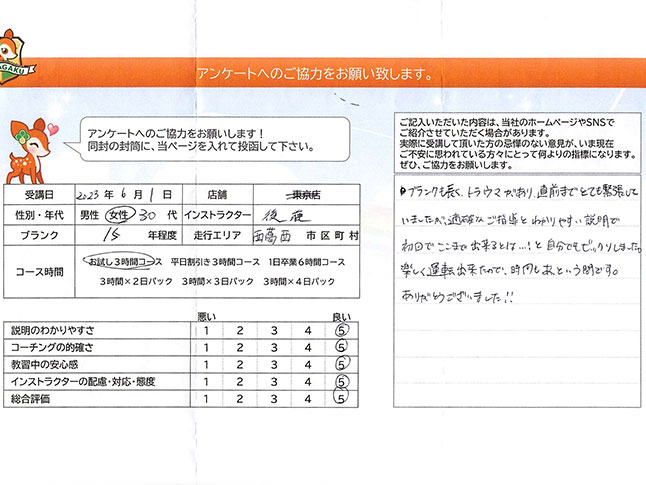 AGAKU
アンケートへのご協力をお願い致します。
アンケートへのご協力をお願いします！
同封の封筒に、当ページを入れて投函して下さい。
受講日 2023年 6月 1日 店舗 東京店
性別・年代 男性 女性 30代 インストラクター
ブランク 15 年程度 走行エリア 西葛西 市区町村
コース時間 お試し3時間コース 平日割引き3時間コース 1日卒業6時間コース
3時間×2日パック 3時間×3日パック 3時間×4日パック
悪い 良い
説明のわかりやすさ 1 2 3 4 5
コーチングの的確さ 1 2 3 4 5
教習中の安心感 1 2 3 4 5
インストラクターの配慮・対応・態度 1 2 3 4 5
総合評価 1 2 3 4 5
ご記入いただいた内容は、当社のホームページやSNSで
ご紹介させていただく場合があります。
実際に受講して頂いた方の忌憚のない意見が、いま現在
ご不安に思われている方々にとって何よりの指標になります。
ぜひ、ご協力をお願いします。
ブランクも長く、トラウマがあり、直前までとても緊張して
いましたが、適確なご指導とわかりやすい説明で
初回でここまで出来るとは…！と自分でもビックリしました。
楽しく運転出来たので、時間もあっという間です。
ありがとうございました!!